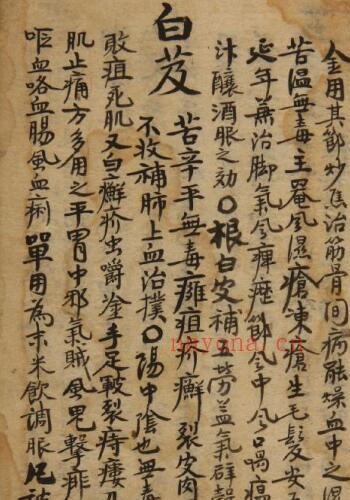 金用其節炒焦治筋骨間病能燥血中之濕
苦溫無毒主罨風濕瘡凍瘡生毛髮安五
延年兼治脚氣風痺歷節風中風口喎
汁釀酒服之効〇根白皮補五勞益氣辟
白芨
苦辛平無毒癰疽疥癬裂皮肉
不收補肺上血治撲〇陽中陰也無毒
敗疽死肌又白癬疥虫嚼塗手足皸裂痔瘻
肌止痛方多用之平胃中邪氣賊風鬼擊痱
嘔血咯血腸風血痢單用為末米飲調服
nayona.cn